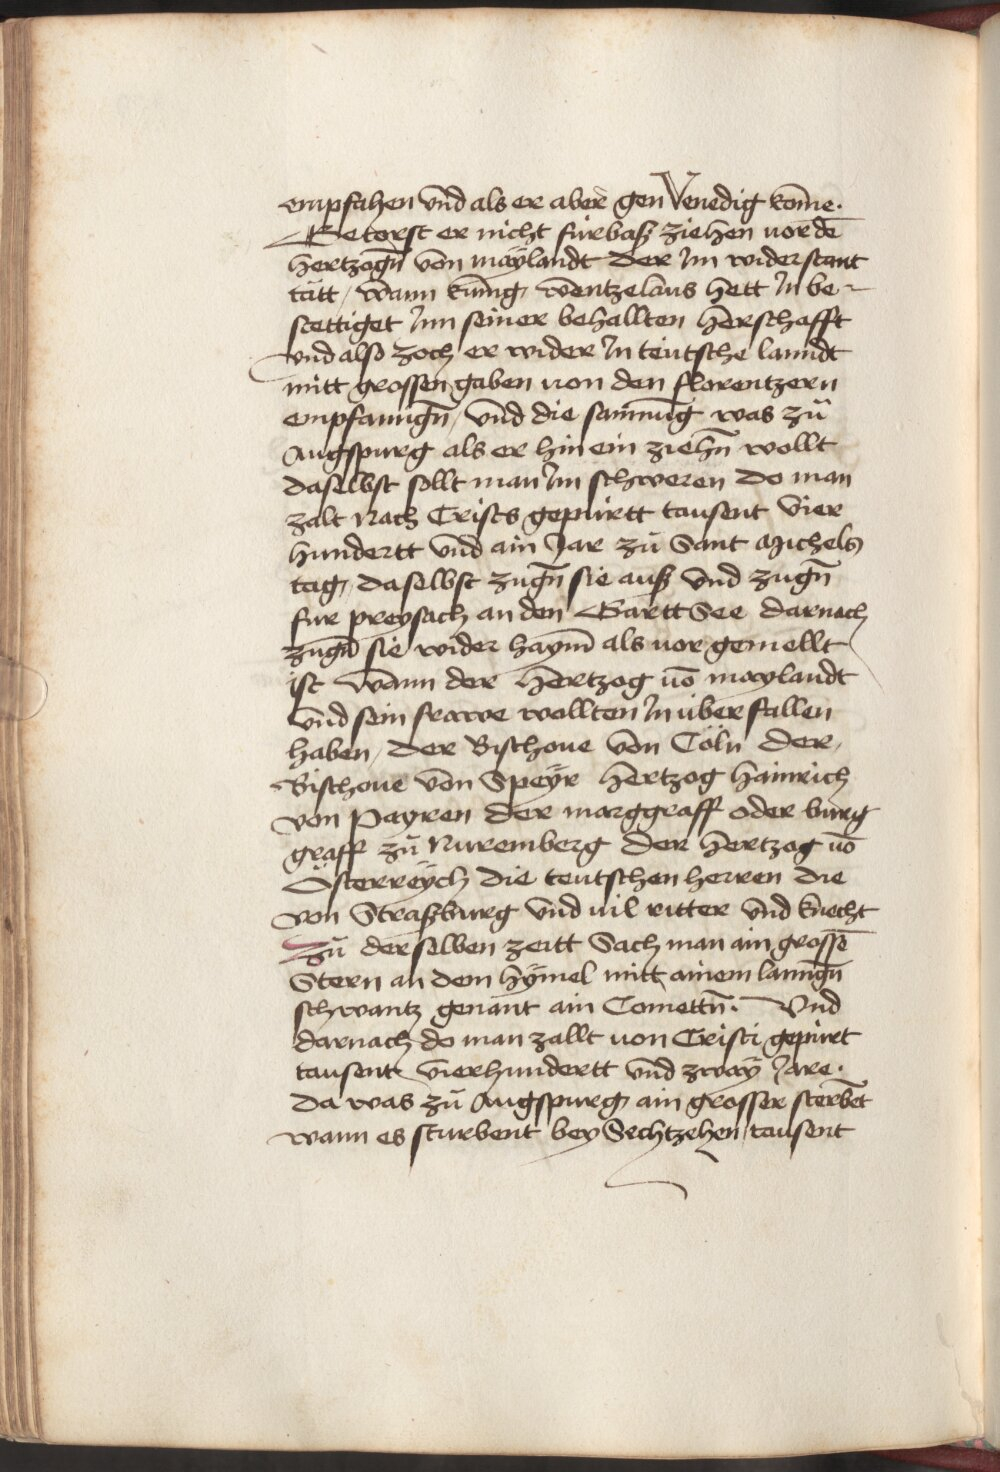 empfahen vnd als er aber gen Venedig kom̄e.
Getorst er nicht furbaß ziehen vor de̅
hertzogn̄ von maÿlandt der Im widerstant
tätt / wann kunig wentzelaus hett In be-
stettiget Inn seiner behallten herschafft
vnd also zoch er wider In teutsche lanndt
mitt grossen gaben von den florentzern
empfanngn̄ / vnd die samnu̅g was zů
Augspurg als er hin ein ziehn̄ wollt
daselbst sollt man Im schweren do man
zalt Nach Crists gepurtt tausent vier
hundertt vnd ain Jar zů Sant Michels
tag, daselbst zugn̄ sie auß vnd zugn̄
fur preysach an den Gartt See darnach
zugn̄ sie wider haym̄ als vor gemellt
ist wann der hertzog vo̅ maylandt
vnd sein frawe wollten In uber fallen
haben / der Bischoue von Cöln der
Bischoue von Speÿr hertzog hainrich
von Payren der marggraff oder burg
graff zů Nuremberg der hertzog vo̅
Österreÿch die teutschen herren die
von Straßburg vnd vil ritter vnd knecht
Zů derselben zeitt Sach man ain grosse̅
Stern an dem hÿmel mitt ainem lanngn̄
schwantz genant ain Comettn̄. Vnd
darnach do man zallt von Cristi gepurt
tausent vierhundertt vnd zwaÿ Jare.
Da was zů Augspurg ain grosser sterbe̅t
wann es sturbent bey Sechtzehen tausent